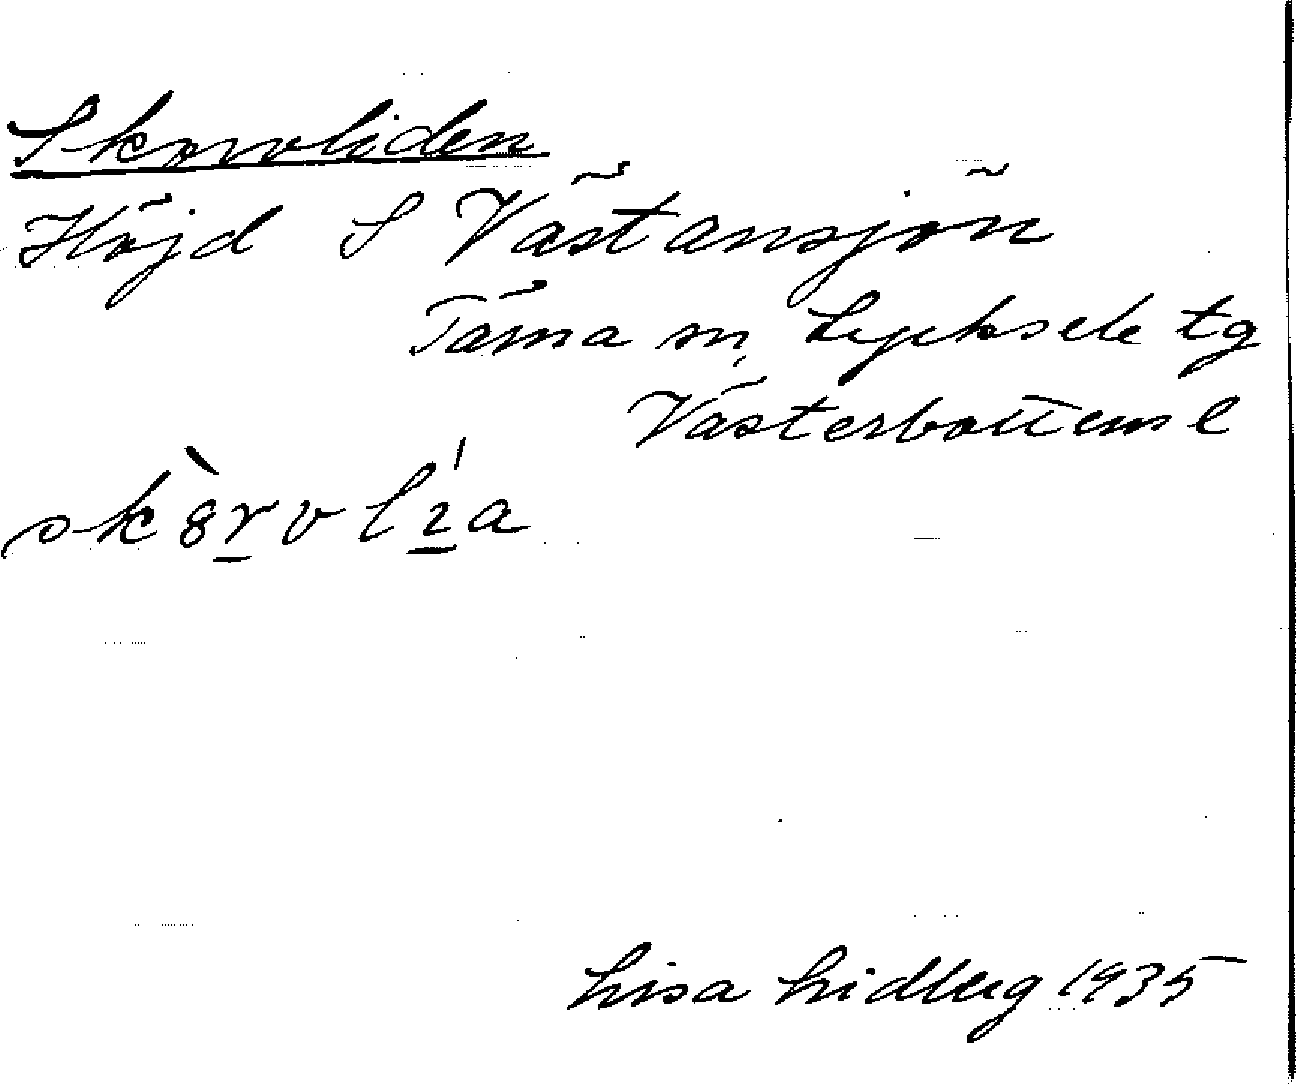 Skorvliden
Höjd S Västansjön
Tärna sn, Lycksele tg
Västerbottens l
Lisa Lidberg 1935